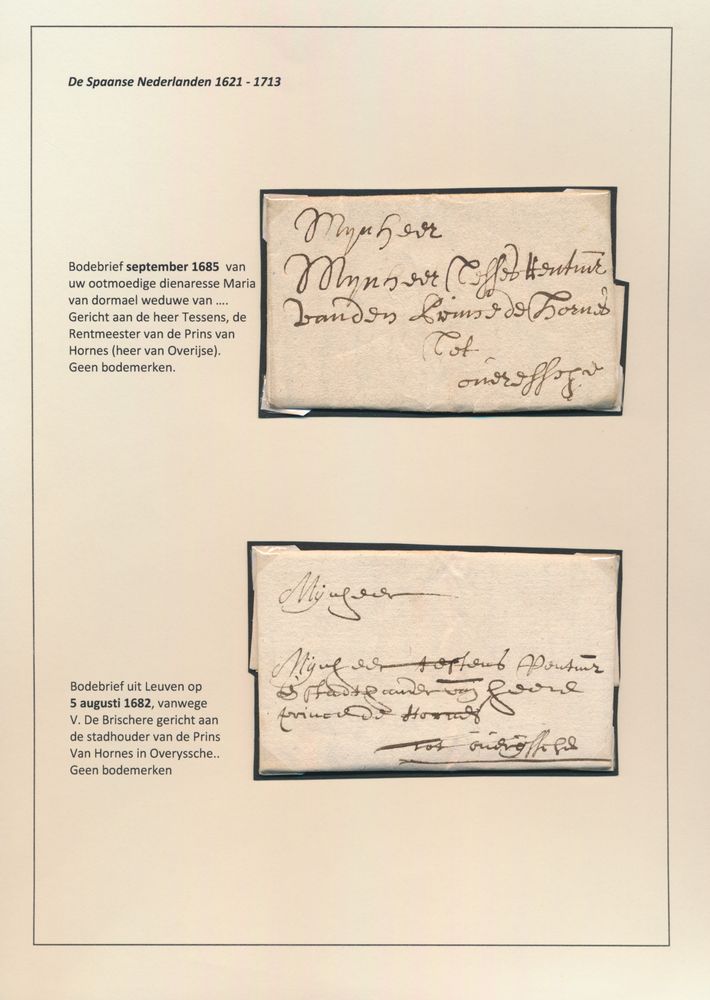 De Spaanse Nederlanden 1621 - 1713
Bodebrief september 1685 van
uw ootmoedige dienaresse Maria
van dormael weduwe van ....
Gericht aan de heer Tessens, de
Rentmeester van de Prins van
Hornes (heer van Overijse).
Geen bodemerken.
Mynheer
Mynheer Rentmr
vanden Prince de Hornes
Tot
Bodebrief uit Leuven op
5 augusti 1682, vanwege
V. De Brischere gericht aan
de stadhouder van de Prins
Van Hornes in Overyssche..
Geen bodemerken
Mijnheer
Mijnheer testens Rentmr
prince de Hornes
tot